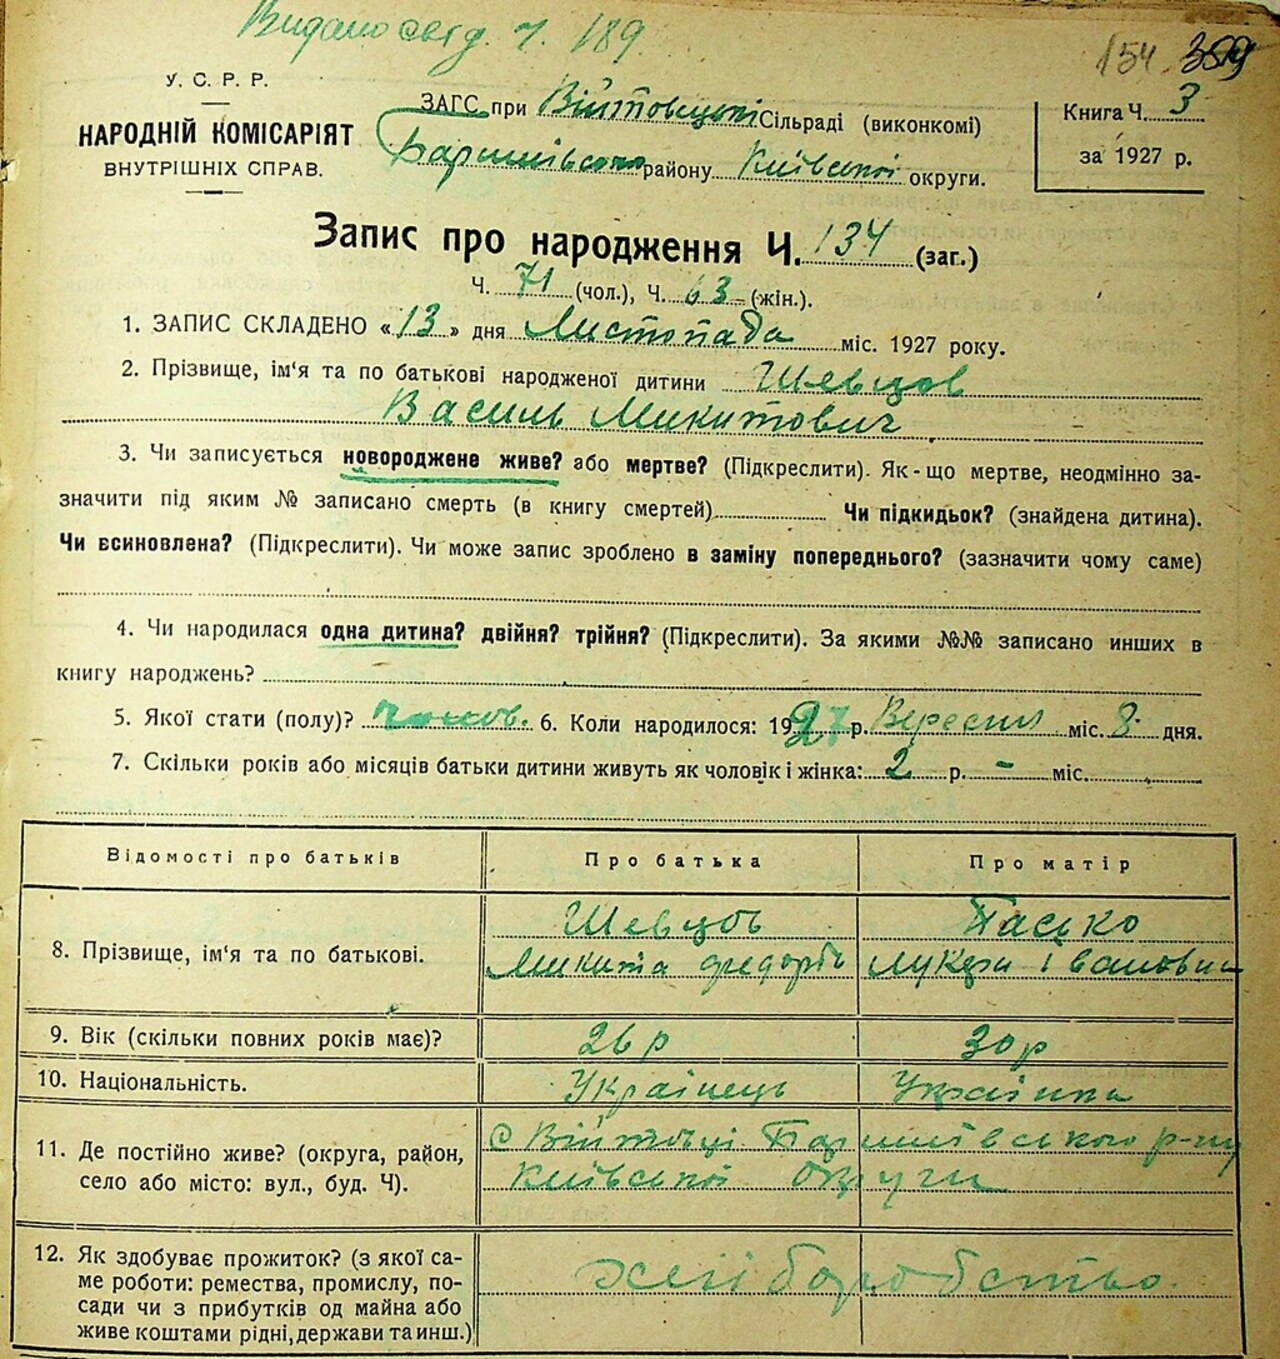 Видано свід. ч. 189.
154 359
У. С. Р. Р.
НАРОДНІЙ КОМІСАРІЯТ
ВНУТРІШНІХ СПРАВ.
ЗАГС при Війтовецькі Сільраді (виконкомі)
Баришівсько району Київської округи.
Книга Ч. 3
за 1927 р.
Запис про народження Ч. 134 (заг.)
Ч. 71 (чол.), Ч. 63 (жін.).
1. ЗАПИС СКЛАДЕНО «13» дня Листопада міс. 1927 року.
2. Прізвище, ім'я та по батькові народженої дитини Шевцов
Василь Микитович
3. Чи записується новороджене живе? або мертве? (Підкреслити). Як-що мертве, неодмінно за-
значити під яким № записано смерть (в книгу смертей) Чи підкидьок? (знайдена дитина).
Чи всиновлена? (Підкреслити). Чи може запис зроблено в заміну попереднього? (зазначити чому саме)
4. Чи народилася одна дитина? двійня? трійня? (Підкреслити). За якими №№ записано инших в
книгу народжень?
5. Якої стати (полу)? чолов. 6. Коли народилося: 1927 р. Вересня міс. 8 дня.
7. Скільки років або місяців батьки дитини живуть як чоловік і жінка: 2 р. - міс.
Відомості про батьків Про батька Про матір
8. Прізвище, ім'я та по батькові.
Шевцов Пасько
Микита Федоров Лукеря Івановна
9. Вік (скільки повних років має)? 26 р 30 р
10. Національність. Українець Українка
11. Де постійно живе? (округа, район,
село або місто: вул., буд. Ч).
с Війтовці Баришівського р-ну
Київської Округи
12. Як здобуває прожиток? (з якої са-
ме роботи: ремества, промислу, по-
сади чи з прибутків од майна або
живе коштами рідні, держави та инш.)
хліборобство